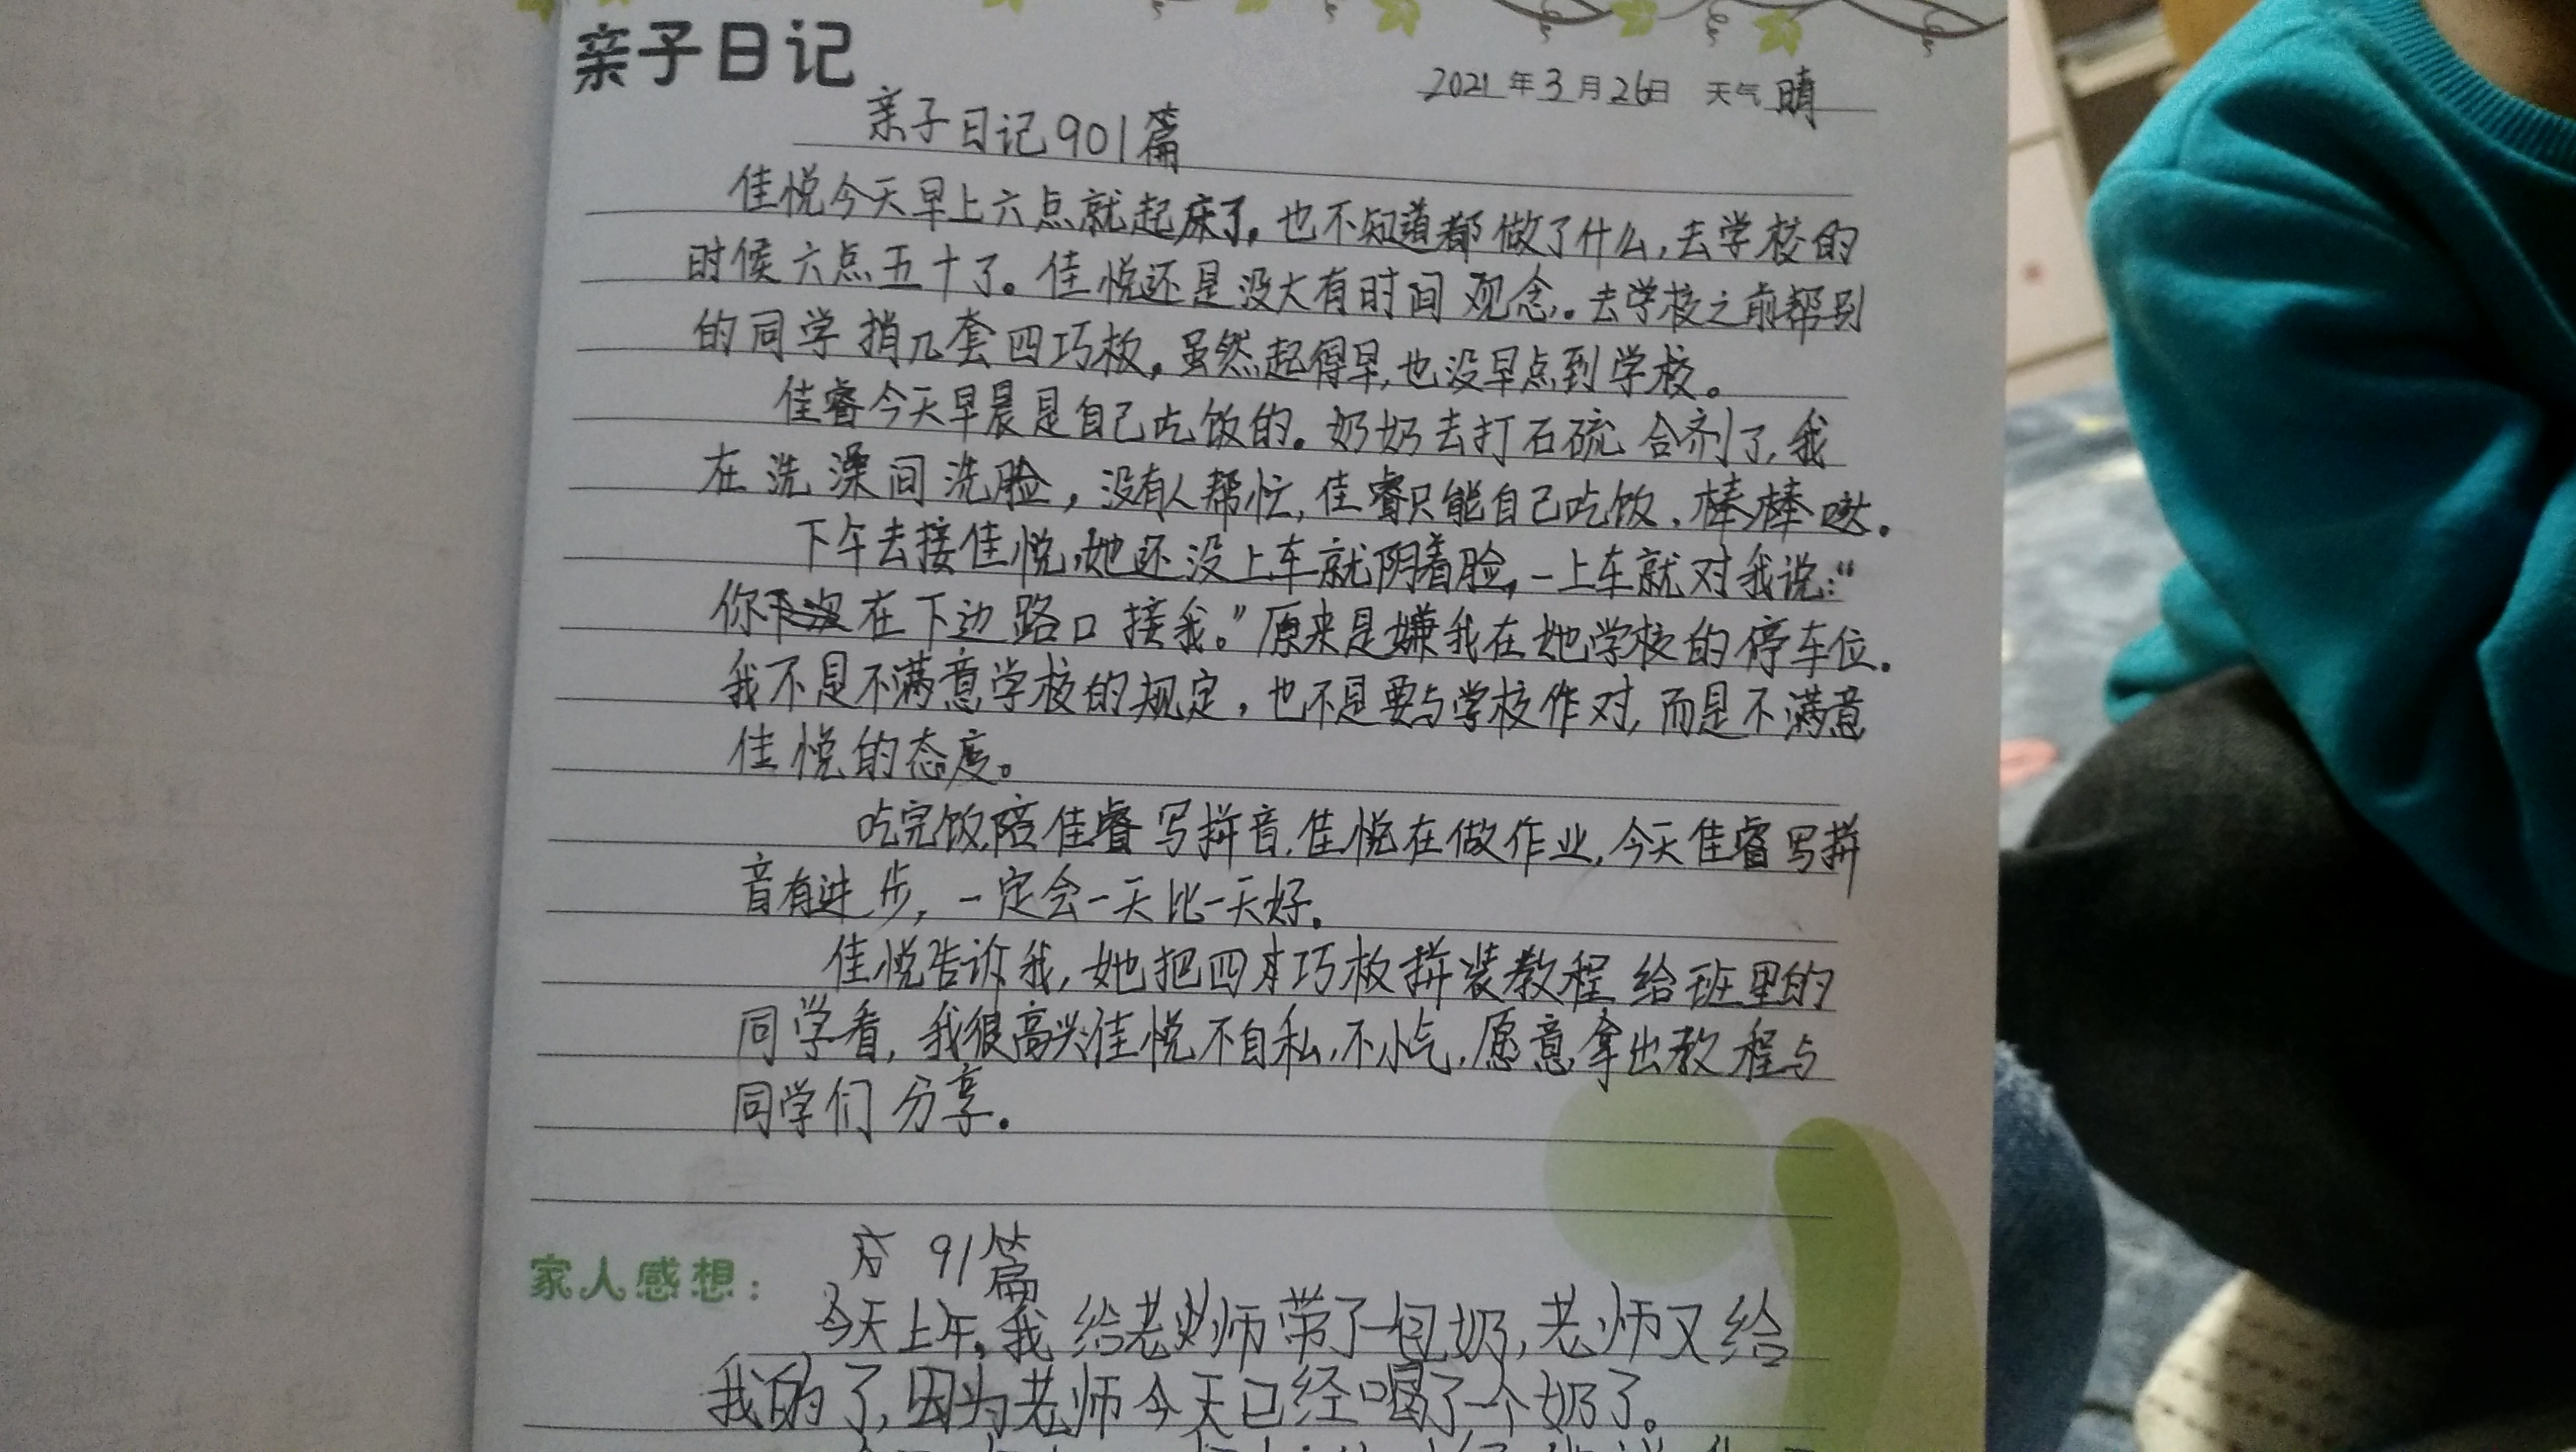 亲子日记
2021年3月26日 天气 晴
亲子日记901篇
佳悦今天早上六点就起床了,也不知道都做了什么,去学校的
时候六点五十了。佳悦还是没大有时间观念。去学校之前帮别
的同学捎几套四巧板,虽然起得早,也没早点到学校。
佳睿今天早晨是自己吃饭的。奶奶去打石硫合剂了,我
在洗澡间洗脸,没有人帮忙,佳睿只能自己吃饭,棒棒哒。
下午去接佳悦,她还没上车就阴着脸,一上车就对我说:“
你下次在下边路口接我。”原来是嫌我在她学校的停车位。
我不是不满意学校的规定,也不是要与学校作对,而是不满意
佳悦的态度。
吃完饭陪佳睿写拼音,佳悦在做作业,今天佳睿写拼
音有进步,一定会一天比一天好。
佳悦告诉我,她把四巧板拼装教程给班里的
同学看,我很高兴佳悦不自私,不小气,愿意拿出教程与
同学们分享。
91篇
家人感想:
今天上午,我给老师带了一包奶,老师又给
我的了,因为老师今天已经喝了一个奶了。